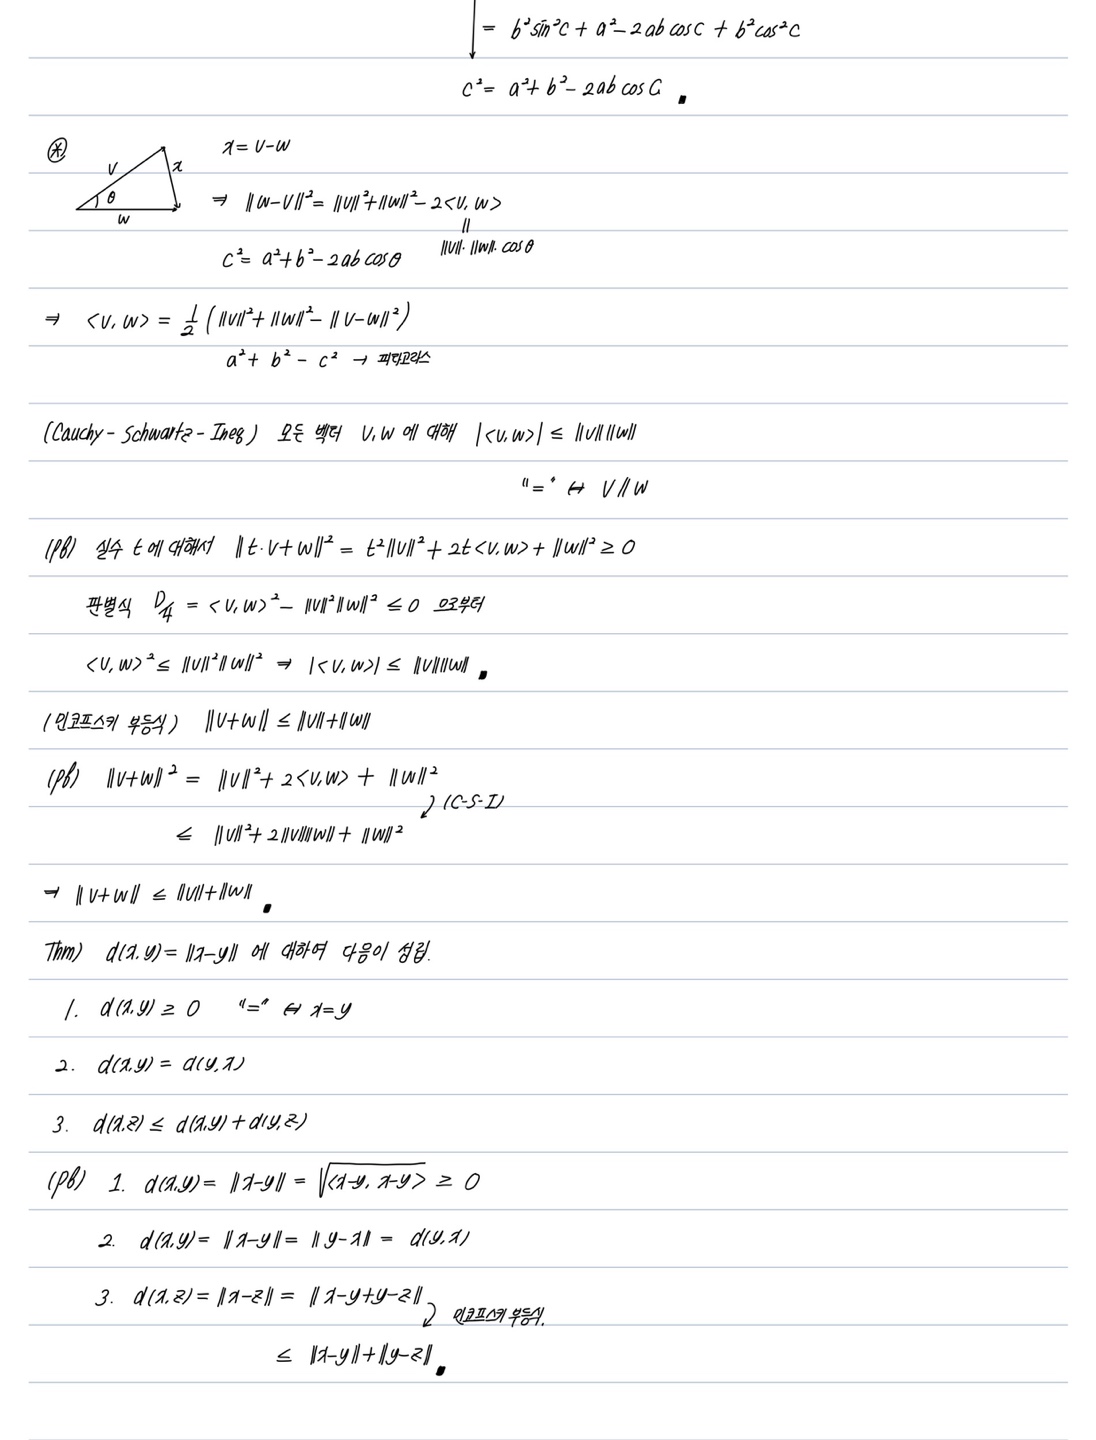 = b²sin²C + a² - 2ab cosC + b²cos²C
c² = a² + b² - 2ab cos C
⊛ V x θ w x = V-W
⇒ ||W-V||² = ||V||² + ||W||² - 2<V, W>
||
||V||·||W||·cosθ
c² = a² + b² - 2ab cosθ
⇒ <V, W> = 1/2 (||V||² + ||W||² - ||V-W||²)
a² + b² - c² → 피타고라스
(Cauchy-Schwartz-Ineq) 모든 벡터 V, W에 대해 |<V, W>| ≤ ||V||||W||
"=" ⇔ V//W
(pf) 실수 t에 대해서 ||t·V+W||² = t²||V||² + 2t<V, W> + ||W||² ≥ 0
판별식 D/4 = <V, W>² - ||V||²||W||² ≤ 0 으로부터
<V, W>² ≤ ||V||²||W||² ⇒ |<V, W>| ≤ ||V||||W||
(민코프스키 부등식) ||V+W|| ≤ ||V||+||W||
(pf) ||V+W||² = ||V||² + 2<V, W> + ||W||²
(C-S-I)
≤ ||V||² + 2||V||||W|| + ||W||²
⇒ ||V+W|| ≤ ||V||+||W||
Thm) d(x, y) = ||x-y|| 에 대하여 다음이 성립.
1. d(x, y) ≥ 0 "=" ⇔ x=y
2. d(x, y) = d(y, x)
3. d(x, z) ≤ d(x, y) + d(y, z)
(pf) 1. d(x, y) = ||x-y|| = √<x-y, x-y> ≥ 0
2. d(x, y) = ||x-y|| = ||y-x|| = d(y, x)
3. d(x, z) = ||x-z|| = ||x-y+y-z||
민코프스키 부등식.
≤ ||x-y||+||y-z||